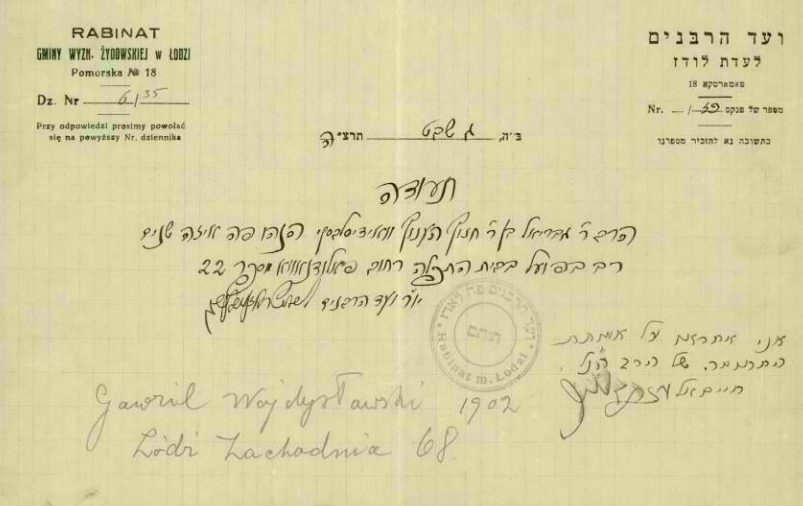 RABINAT
GMINY WYZN. ŻYDOWSKIEJ w ŁODZI
Pomorska № 18
Dz. Nr 6/35
Przy odpowiedzi prosimy powołać
się na powyższy Nr. dziennika
ועד הרבנים
לעדת לודז
פאמארסקא 18
מספר של פנקס Nr.
בתשובה נא להזכיר מספרנו
ב״ה, ג שבט תרצ״ה
תעודה
הרב ר׳ גבריאל ב״ר חנוך
פה איזה שנים
רב בפועל בבית התפלה רחוב מספר 22
יו״ר ועד הרבנים
ועד הרבנים פה לאדז
חותם
Rabinat m. Łodzi
אני על אמתת
של הרב הנ״ל.
Gawriel Wojdysławski 1902
Łódź Zachodnia 68